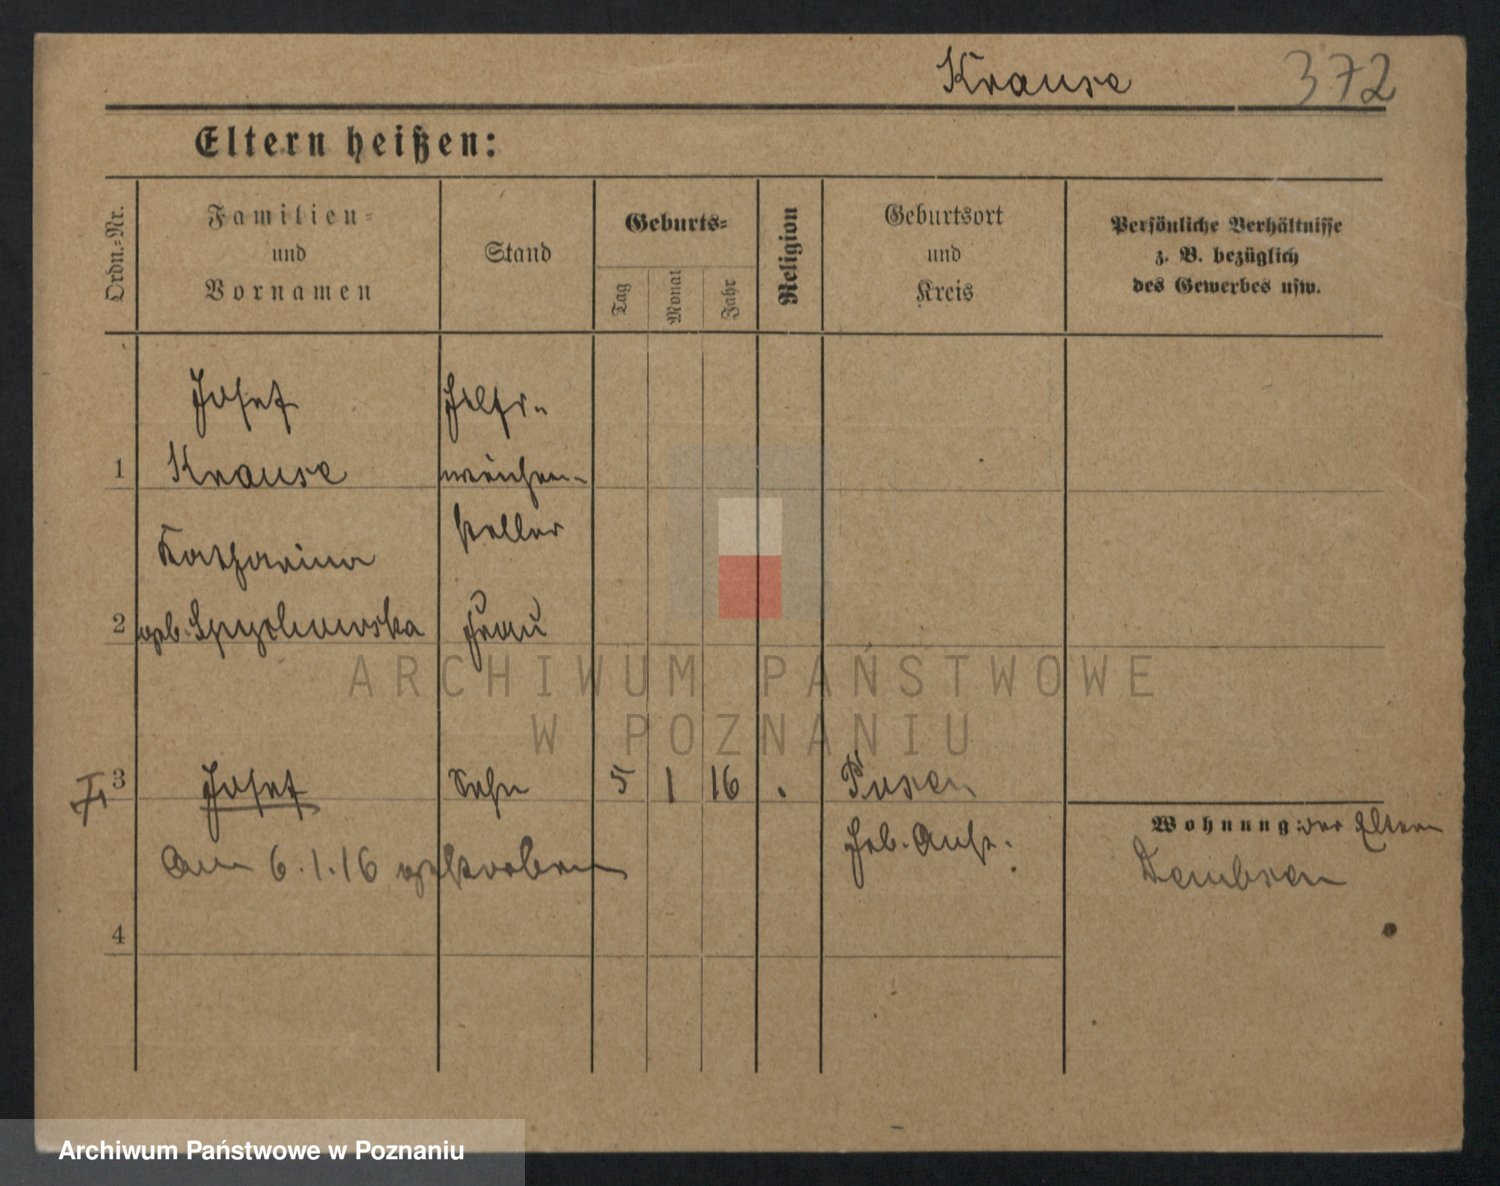 Krause 372
Eltern heißen:
Ordn.=Nr.
Familien=
und
Vornamen
Stand
Geburts=
Tag
Monat
Jahr
Religion
Geburtsort
und
Kreis
Persönliche Verhältnisse
z. B. bezüglich
des Gewerbes usw.
Josef Hilfs-
1 Krause weichen-
steller
Katharina
2 geb. Frau
3 Josef Sohn 5 1 16 . Posen
Wohnung: der Eltern
Am 6.1.16 gestorben Heb. Anst. Dembsen
4
ARCHIWUM PAŃSTWOWE
W POZNANIU
Archiwum Państwowe w Poznaniu